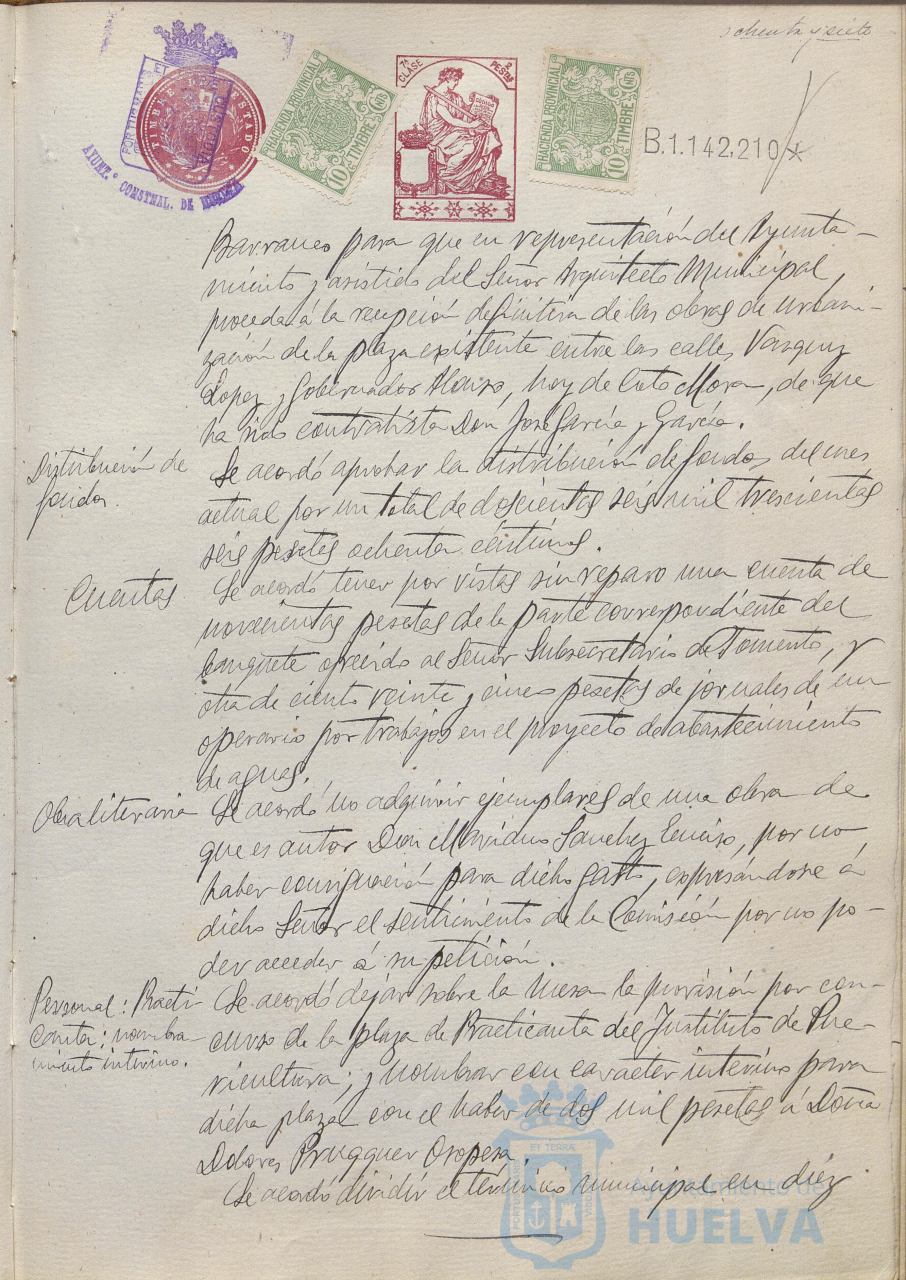 ochenta y siete
TIMBRE DEL ESTADO
AYUNT.º CONSTNAL. DE HUELVA
HACIENDA PROVINCIAL
10 CNTS
TIMBRE
7ª CLASE
2 PESTAS
HACIENDA PROVINCIAL
10 CNTS
TIMBRE
B.1.142,210*
Barranco para que en representación del Ayunta-
miento y asistido del Señor Arquitecto Municipal,
proceda á la recepción definitiva de las obras de urbani-
zación de la plaza existente entre las calles Vazquez
Lopez y Gobernador Alonso, hoy de Coto Mora, de que
ha sido contratista Don José García y García.
Distribución de
fondos.
Se acordó aprobar la distribución de fondos del mes
actual por un total de doscientas seis mil trescientas
seis pesetas ochenta céntimos.
Cuentas
Se acordó tener por vistas sin reparo una cuenta de
novecientas pesetas de la parte correspondiente del
banquete ofrecido al Señor Subsecretario de Fomento, y
otra de ciento veinte y cinco pesetas de jornales de un
operario por trabajos en el proyecto de abastecimiento
de aguas.
Obra literaria
Se acordó no adquirir ejemplares de una obra de
que es autor Don Mariano Sanchez Enciso, por no
haber consignación para dicho gasto, expresándose á
dicho Señor el sentimiento de la Comisión por no po-
der acceder á su petición.
Personal: Practi-
canta; nombra-
miento interino.
Se acordó dejar sobre la mesa la provisión por con-
curso de la plaza de Practicanta del Instituto de Pue-
ricultura; y nombrar con caracter interino para
dicha plaza con el haber de dos mil pesetas á Doña
Dolores Brugguer Oropesa.
Se acordó dividir el término municipal en diéz
Ayuntamiento de
HUELVA